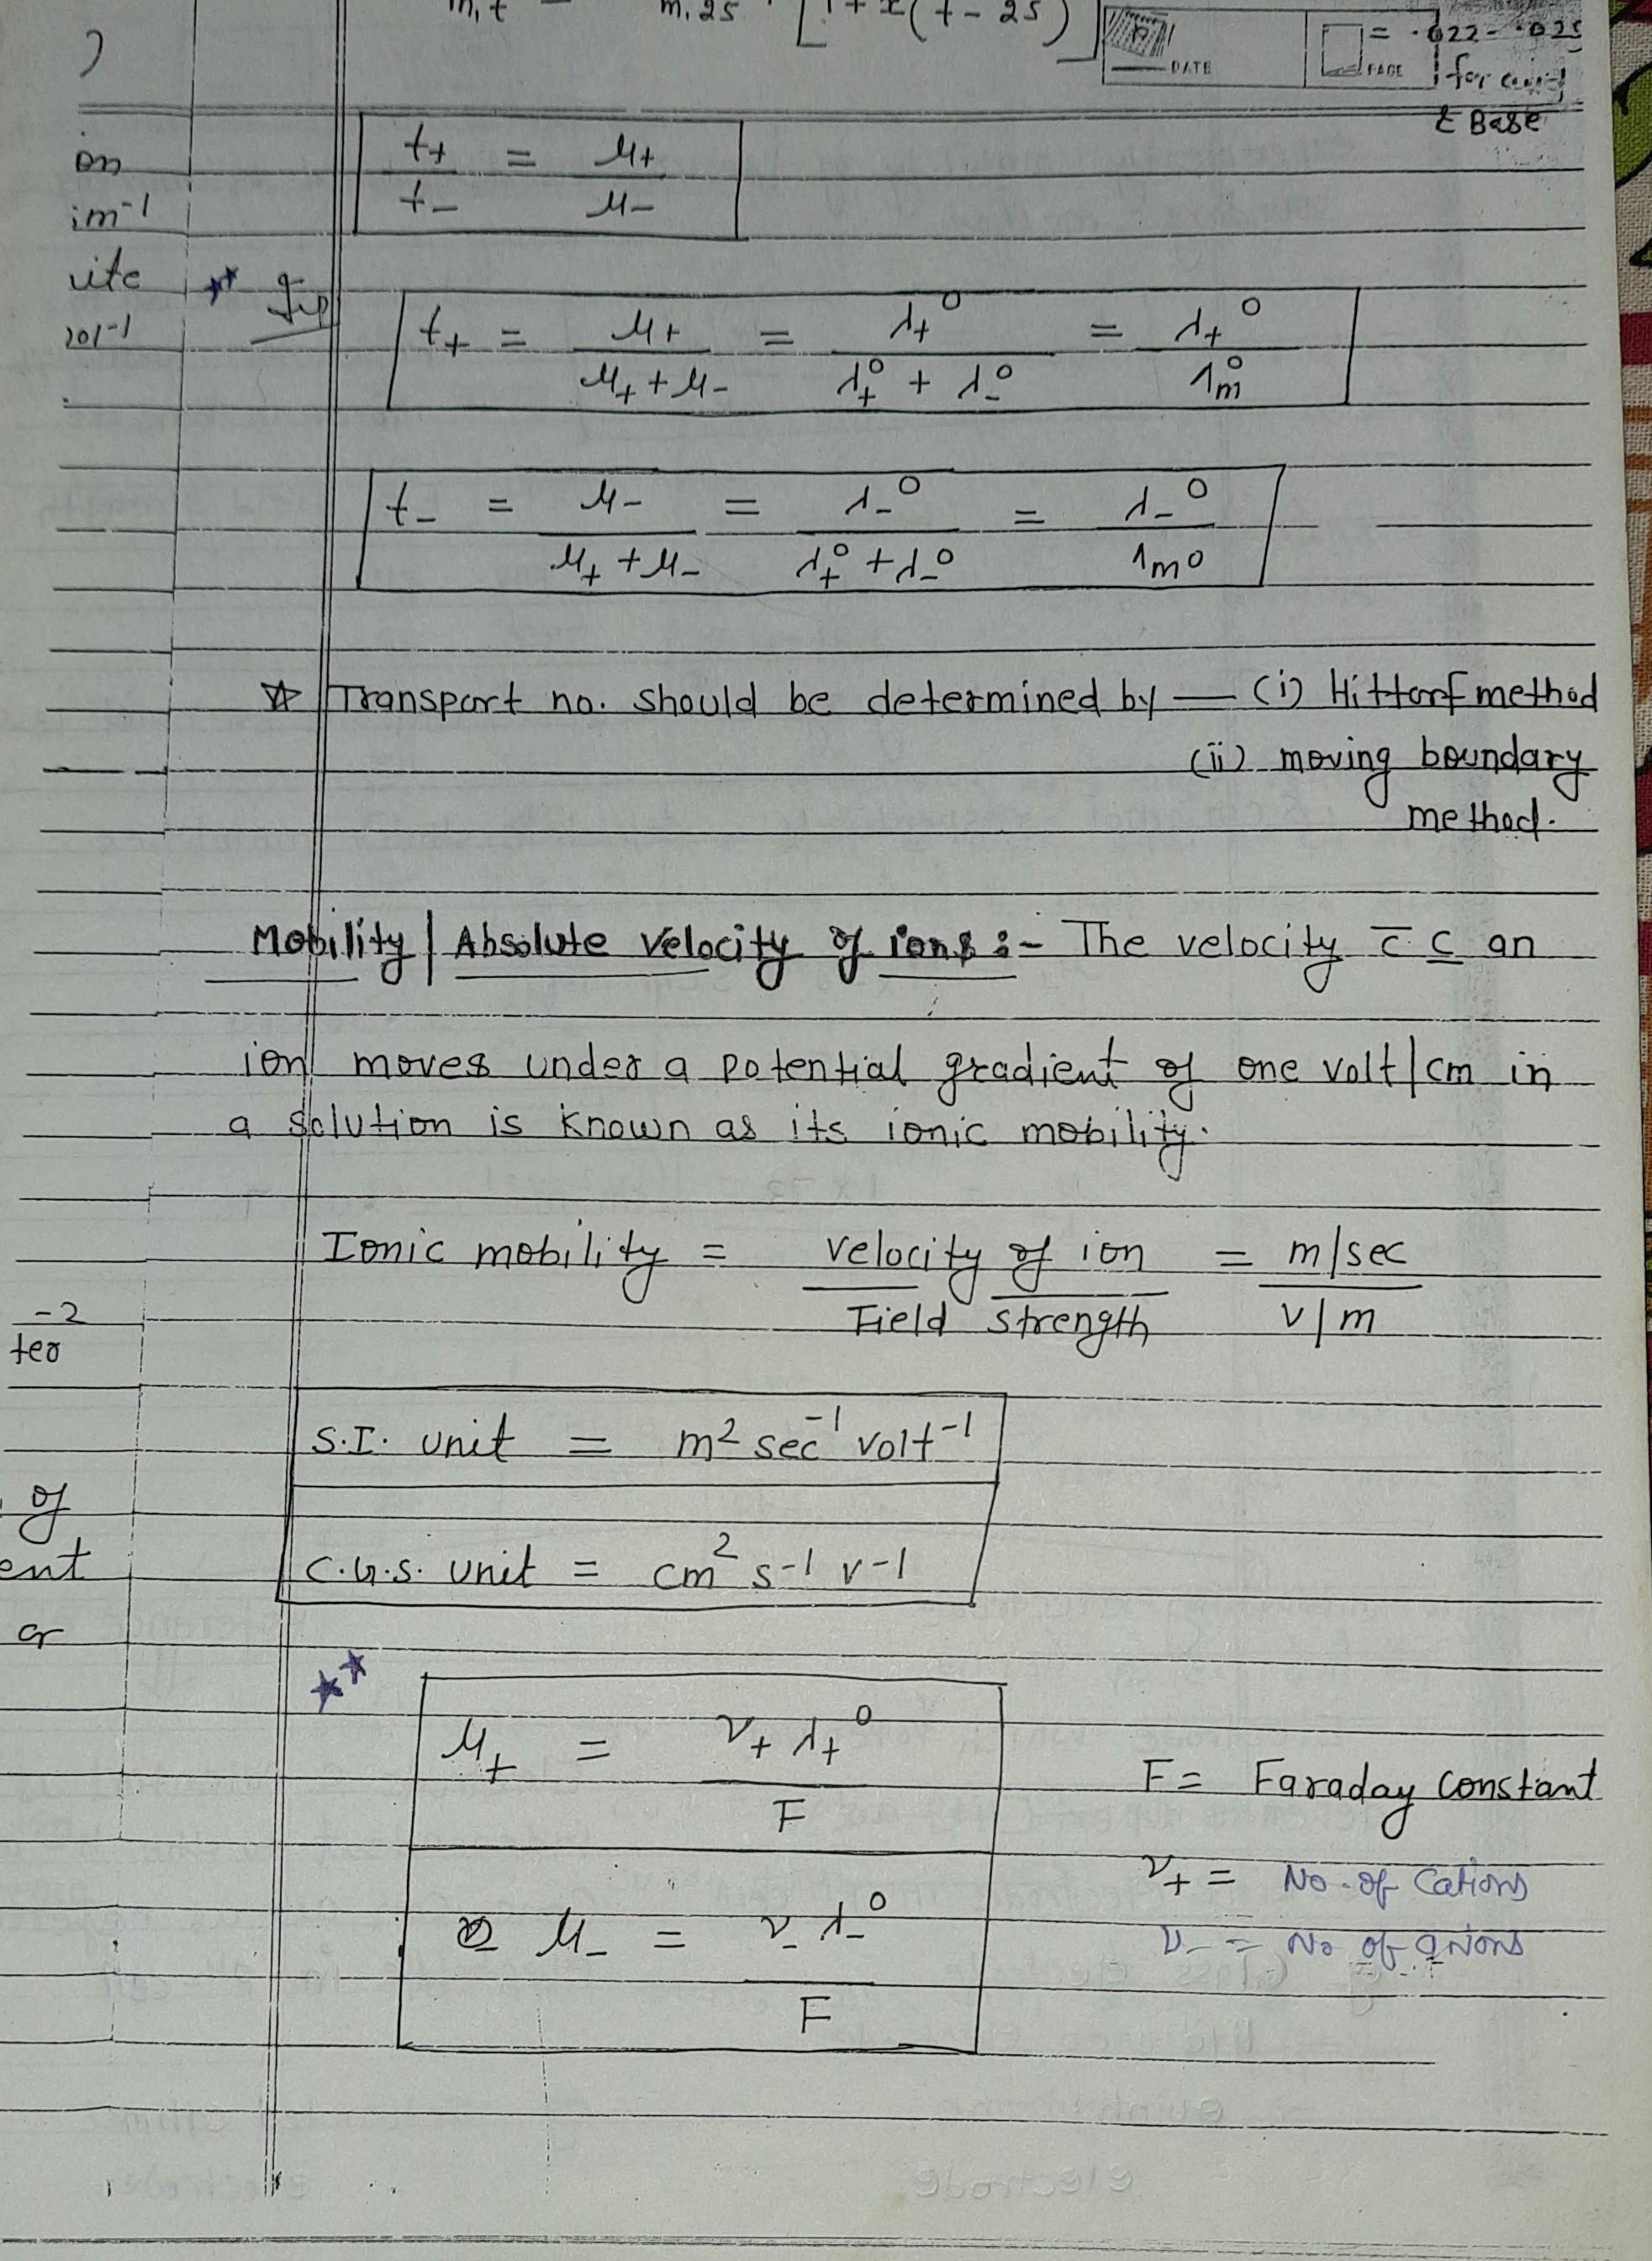 m,t = m,25 [1 + x(t - 25)]
= .022 - .025
DATE
PAGE
for
& Base
)
t+/t- = μ+/μ-
on
im⁻¹
t+ = μ+/(μ+ + μ-) = λ+⁰/(λ+⁰ + λ-⁰) = λ+⁰/Λm⁰
t- = μ-/(μ+ + μ-) = λ-⁰/(λ+⁰ + λ-⁰) = λ-⁰/Λm⁰
☆ Transport no. should be determined by — (i) Hittorf method
(ii) moving boundary
method.
Mobility | Absolute velocity of ions :- The velocity c̄ c̲ an
ion moves under a potential gradient of one volt/cm in
a solution is known as its ionic mobility.
Ionic mobility = velocity of ion / Field strength = m/sec / v/m
-2
S.I. unit = m² sec⁻¹ volt⁻¹
of
C.G.S. unit = cm² s-1 v-1
ent
or
μ+ = ν+ λ+⁰ / F
F = Faraday constant
ν+ = No. of Cations
μ- = ν- λ-⁰ / F
ν- = No of anions